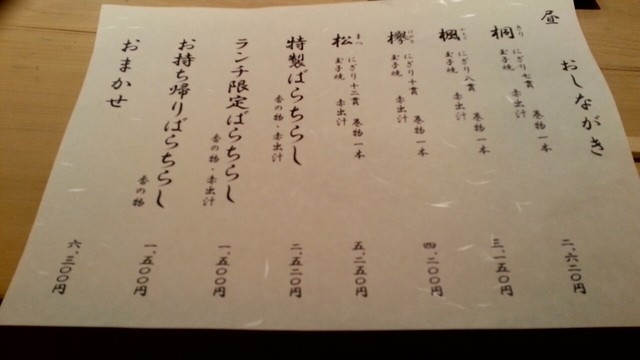 昼 おしながき
桐 きり
にぎり七貫 巻物一本
玉子焼 赤出汁
二、六二〇円
楓 かえで
にぎり八貫 巻物一本
玉子焼 赤出汁
三、一五〇円
欅 けやき
にぎり十貫 巻物一本
玉子焼 赤出汁
四、二〇〇円
松 まつ
にぎり十二貫 巻物一本
玉子焼 赤出汁
五、二五〇円
特製ばらちらし
香の物・赤出汁
二、五二〇円
ランチ限定ばらちらし
香の物・赤出汁
一、五〇〇円
お持ち帰りばらちらし
香の物
一、五〇〇円
おまかせ
六、三〇〇円